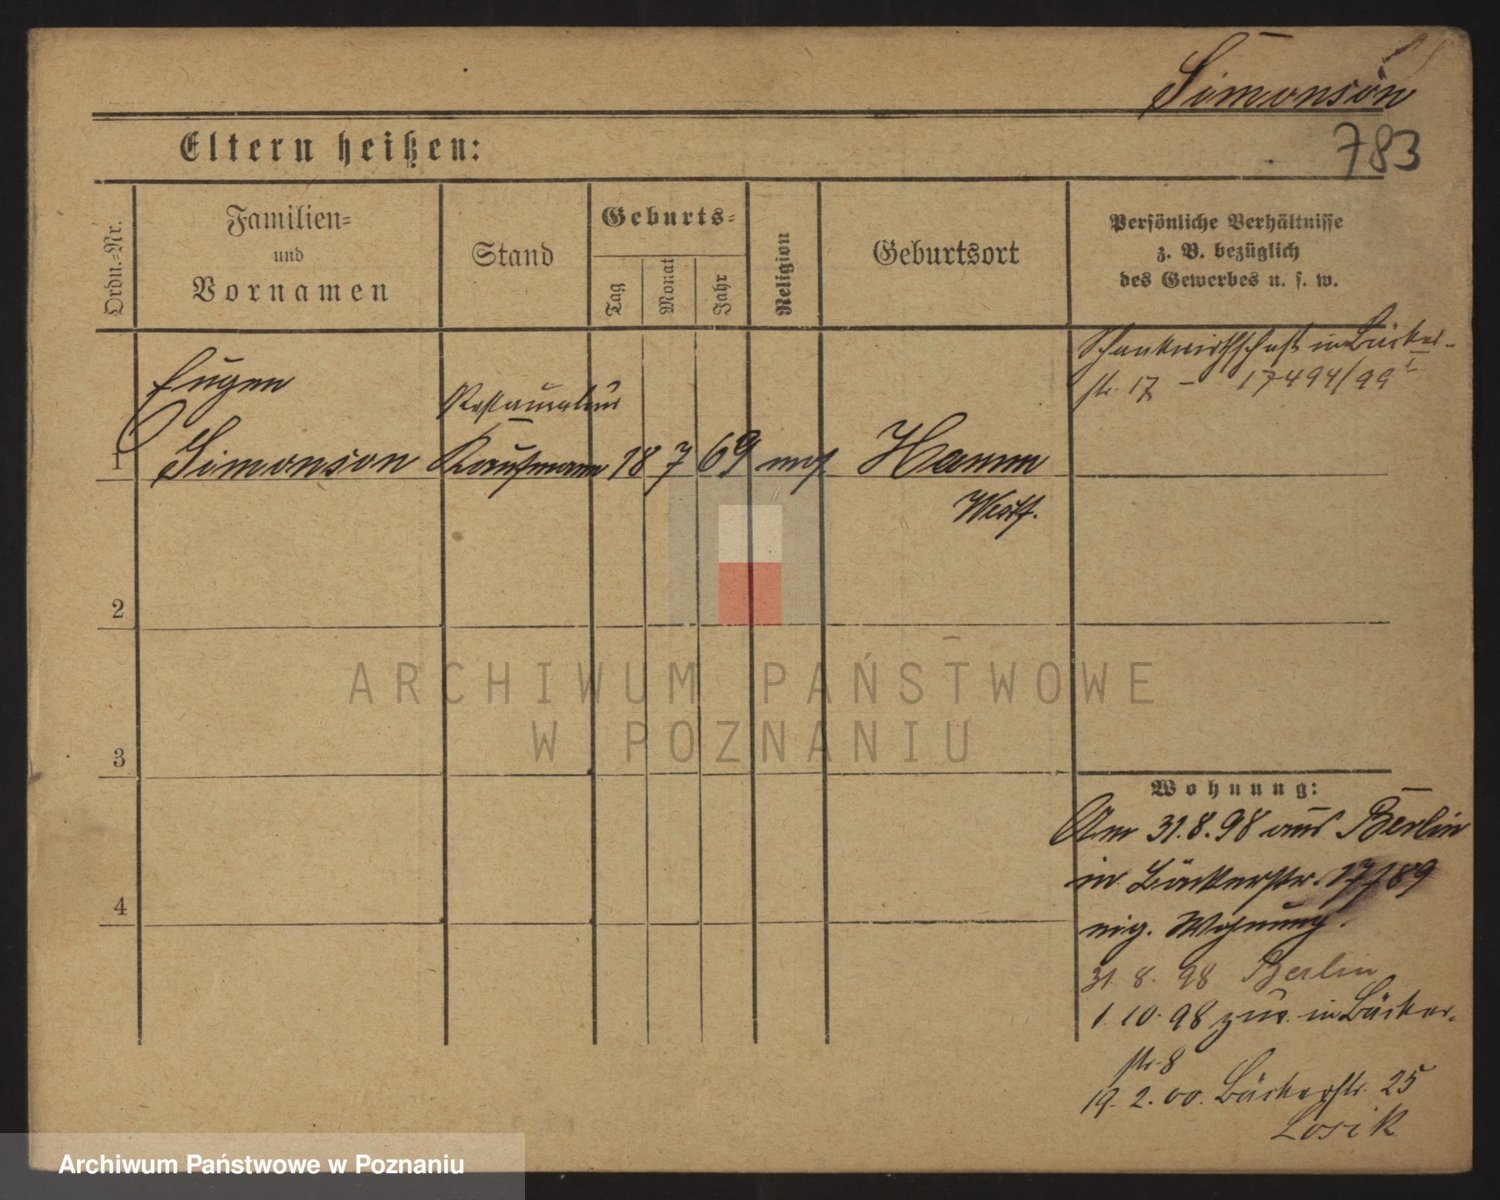 Simonson
783
Eltern heißen:
Ordn.-Nr.
Familien-
und
Vornamen
Stand
Geburts-
Tag
Monat
Jahr
Religion
Geburtsort
Persönliche Verhältnisse
z. B. bezüglich
des Gewerbes u. s. w.
Schankwirthschaft in Bäcker-
str. 17 – 17494/99
Eugen
Restaurateur
1 Simonson Kaufmann 18 7 69 mos Hamm
Westf.
2
3
4
ARCHIWUM PAŃSTWOWE
W POZNANIU
Wohnung:
Am 31.8.98 aus Berlin
in Bäckerstr. 17/189
eig. Wohnung.
31. 8. 98 Berlin
1. 10. 98 zur. in Bäcker-
str. 8
19. 2. 00. Bäckerstr. 25
Losik
Archiwum Państwowe w Poznaniu